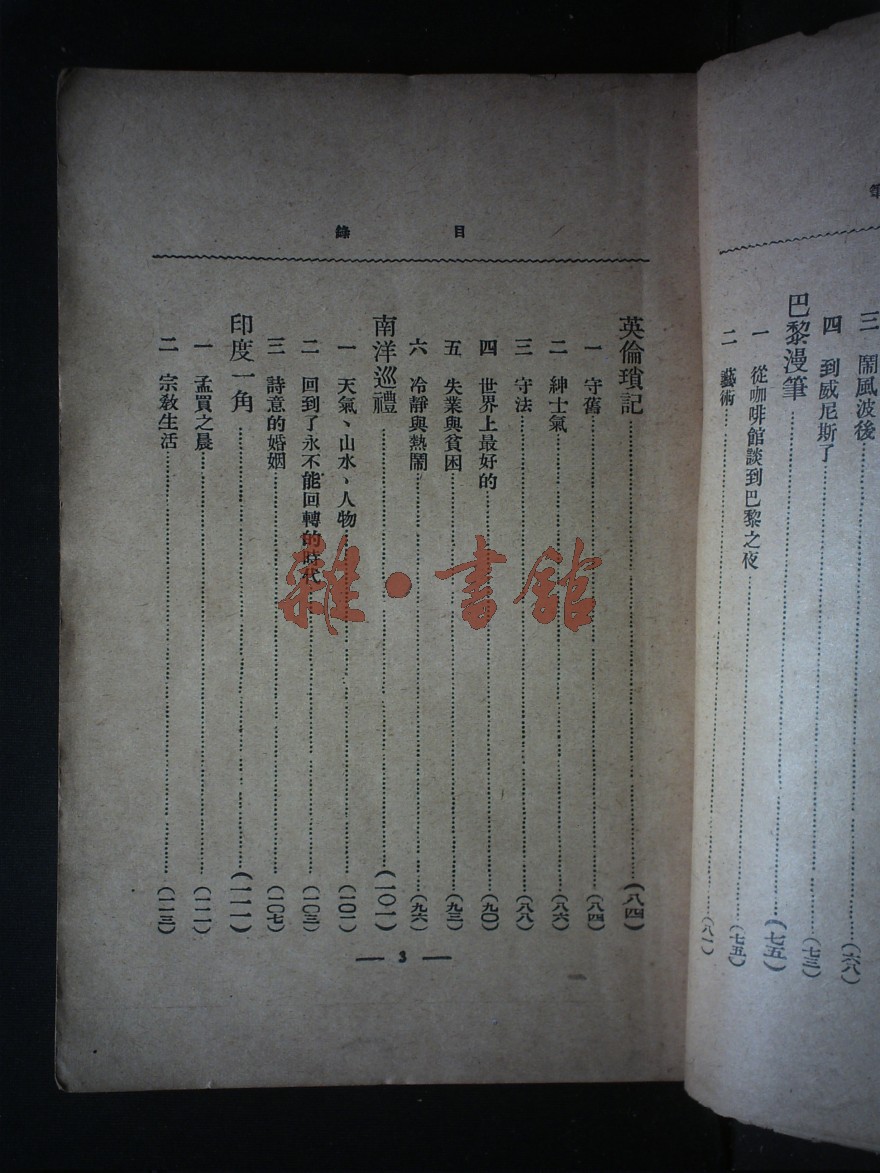 三　鬧風波後……(六八)
四　到威尼斯了……(七三)
巴黎漫筆……(七五)
一　從咖啡館談到巴黎之夜……(七五)
二　藝術……(八一)
目錄
英倫瑣記……(八四)
一　守舊……(八四)
二　紳士氣……(八六)
三　守法……(八八)
四　世界上最好的……(九〇)
五　失業與貧困……(九三)
六　冷靜與熱鬧……(九六)
南洋巡禮……(一〇一)
一　天氣、山水、人物……(一〇一)
二　回到了永不能回轉的時代……(一〇三)
三　詩意的婚姻……(一〇七)
印度一角……(一一一)
一　孟買之晨……(一一一)
二　宗教生活……(一一三)
— 3 —
雜·書館